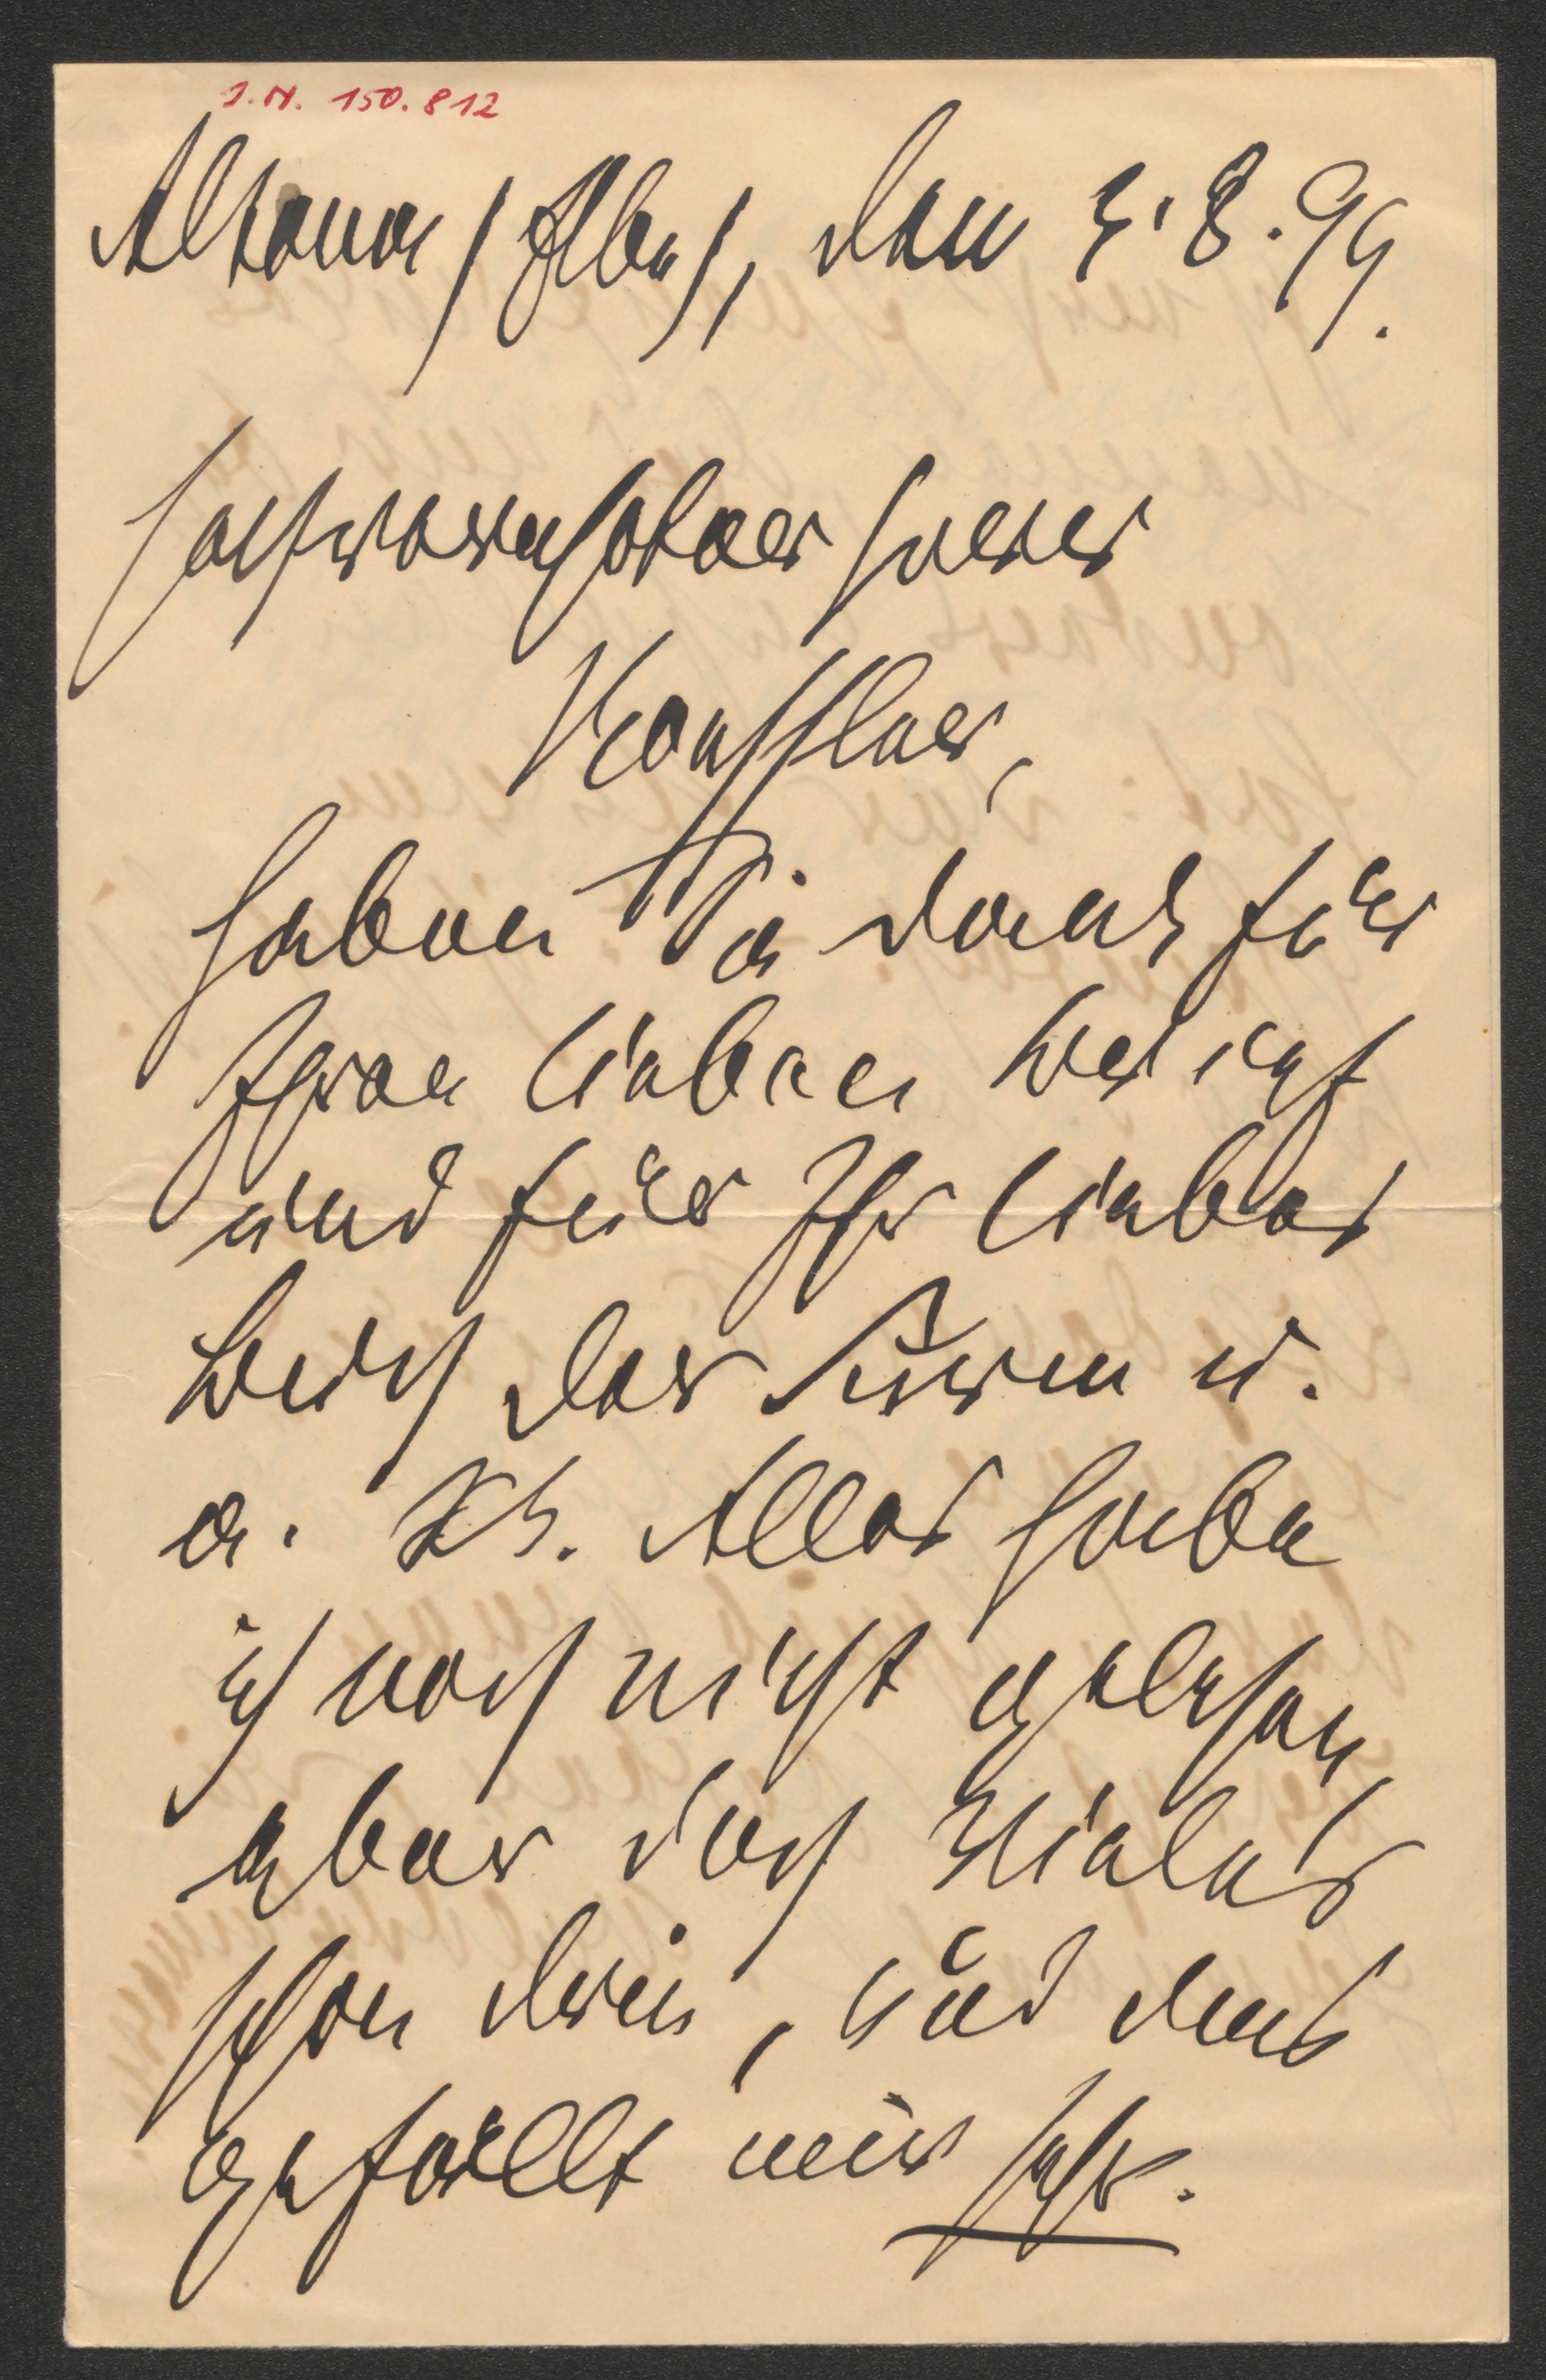 J.N. 150.812
Altona (Elbe), den 3.8.99.
Hochverehrter Herr
Kanssler,
haben Sie Dank für
Ihren lieben Bericht
und für Ihr liebes
Buch der Sinne u.
a. Alles habe
ich noch nicht gelesen
aber doch Vieles
schon drin, und das
gefällt mir sehr.